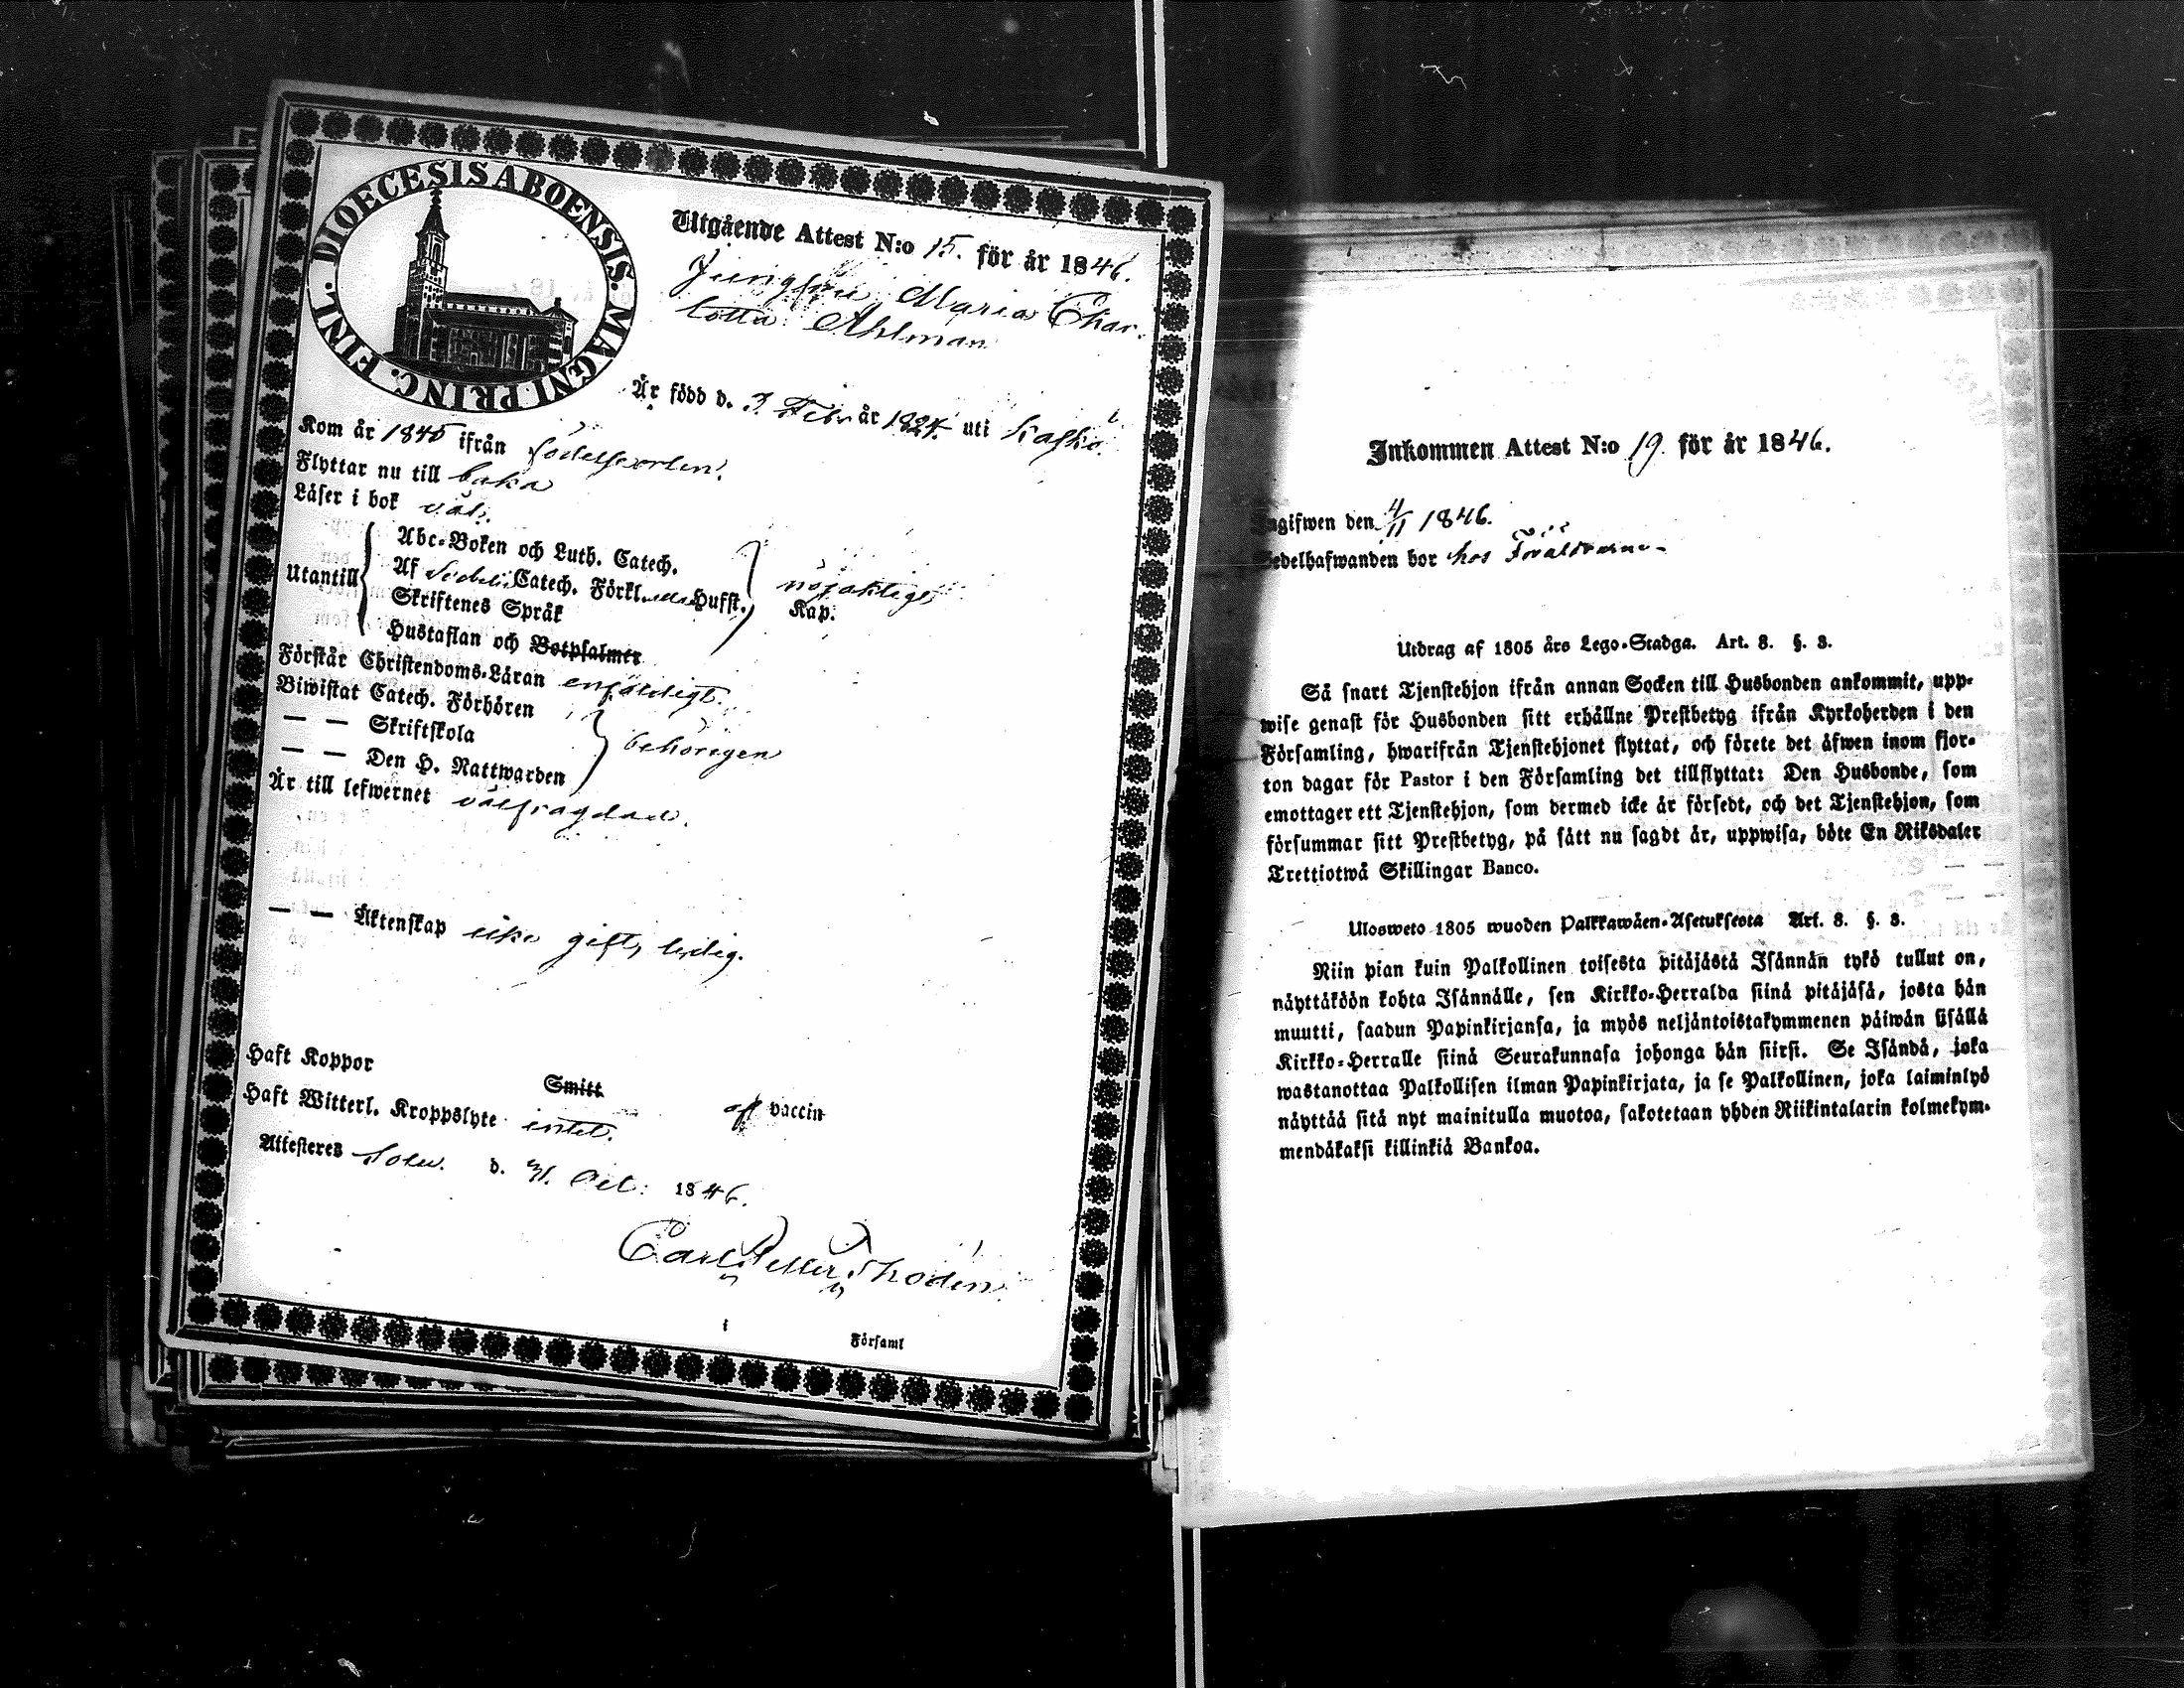 DIOECESIS ABOENSIS. MAGNI PRINC. FINL.
Utgående Attest N:o 15. för år 1846.
Jungfru Maria Char-
lotta Ahlman
Är född d. 3. Febr år 1824. uti Kaskö.
Kom år 1845 ifrån födelseorten.
Flyttar nu till baka
Läser i bok väl.
Utantill
Abc-Boken och Luth. Catech.
Af Sedeli Catech. Förkl. Hufst.
Skriftenes Språk Kap.
Hustaflan och Botpsalmer
nöjaktigt
Förstår Christendoms-Läran enfaldigt.
Biwistat Catech. Förhören
— — Skriftskola
— — Den H. Nattwarden
behörigen
Är till lefwernet välfrägdad.
— — Äktenskap icke gift, ledig.
Haft Koppor Smitt af vaccin
Haft Witterl. Kroppslyte intet.
Attesteres d. 31. Oct: 1846.
Carl Petter
i Församl
Inkommen Attest N:o 19. för år 1846.
ngifwen den 4/11 1846.
edelhafwanden bor hos Föräldrarne
Utdrag af 1805 års Lego-Stadga. Art. 8. §. 3.
Så snart Tjenstehjon ifrån annan Socken till Husbonden ankommit, upp-
wise genast för Husbonden sitt erhållne Prestbetyg ifrån Kyrkoherden i den
Församling, hwarifrån Tjenstehjonet flyttat, och förete det äfwen inom fjor-
ton dagar för Pastor i den Församling det tillflyttat: Den Husbonde, som
emottager ett Tjenstehjon, som dermed icke är försedt, och det Tjenstehjon, som
försummar sitt Prestbetyg, på sätt nu sagdt är, uppwisa, böte En Riksdaler
Trettiotwå Skillingar Banco.
Ulosweto 1805 wuoden Palkkawäen-Asetuksesta Art. 8. §. 3.
Niin pian kuin Palkollinen toisesta pitäjästä Isännän tykö tullut on,
näyttäköön kohta Isännälle, sen Kirkko-Herralda siinä pitäjäsä, josta hän
muutti, saadun Papinkirjansa, ja myös neljäntoistakymmenen päiwän sisällä
Kirkko-Herralle siinä Seurakunnasa johonga hän siirsi. Se Isändä, joka
wastanottaa Palkollisen ilman Papinkirjata, ja se Palkollinen, joka laiminlyö
näyttää sitä nyt mainitulla muotoa, sakotetaan yhden Riikintalarin kolmekym-
mendäkaksi killinkiä Bankoa.